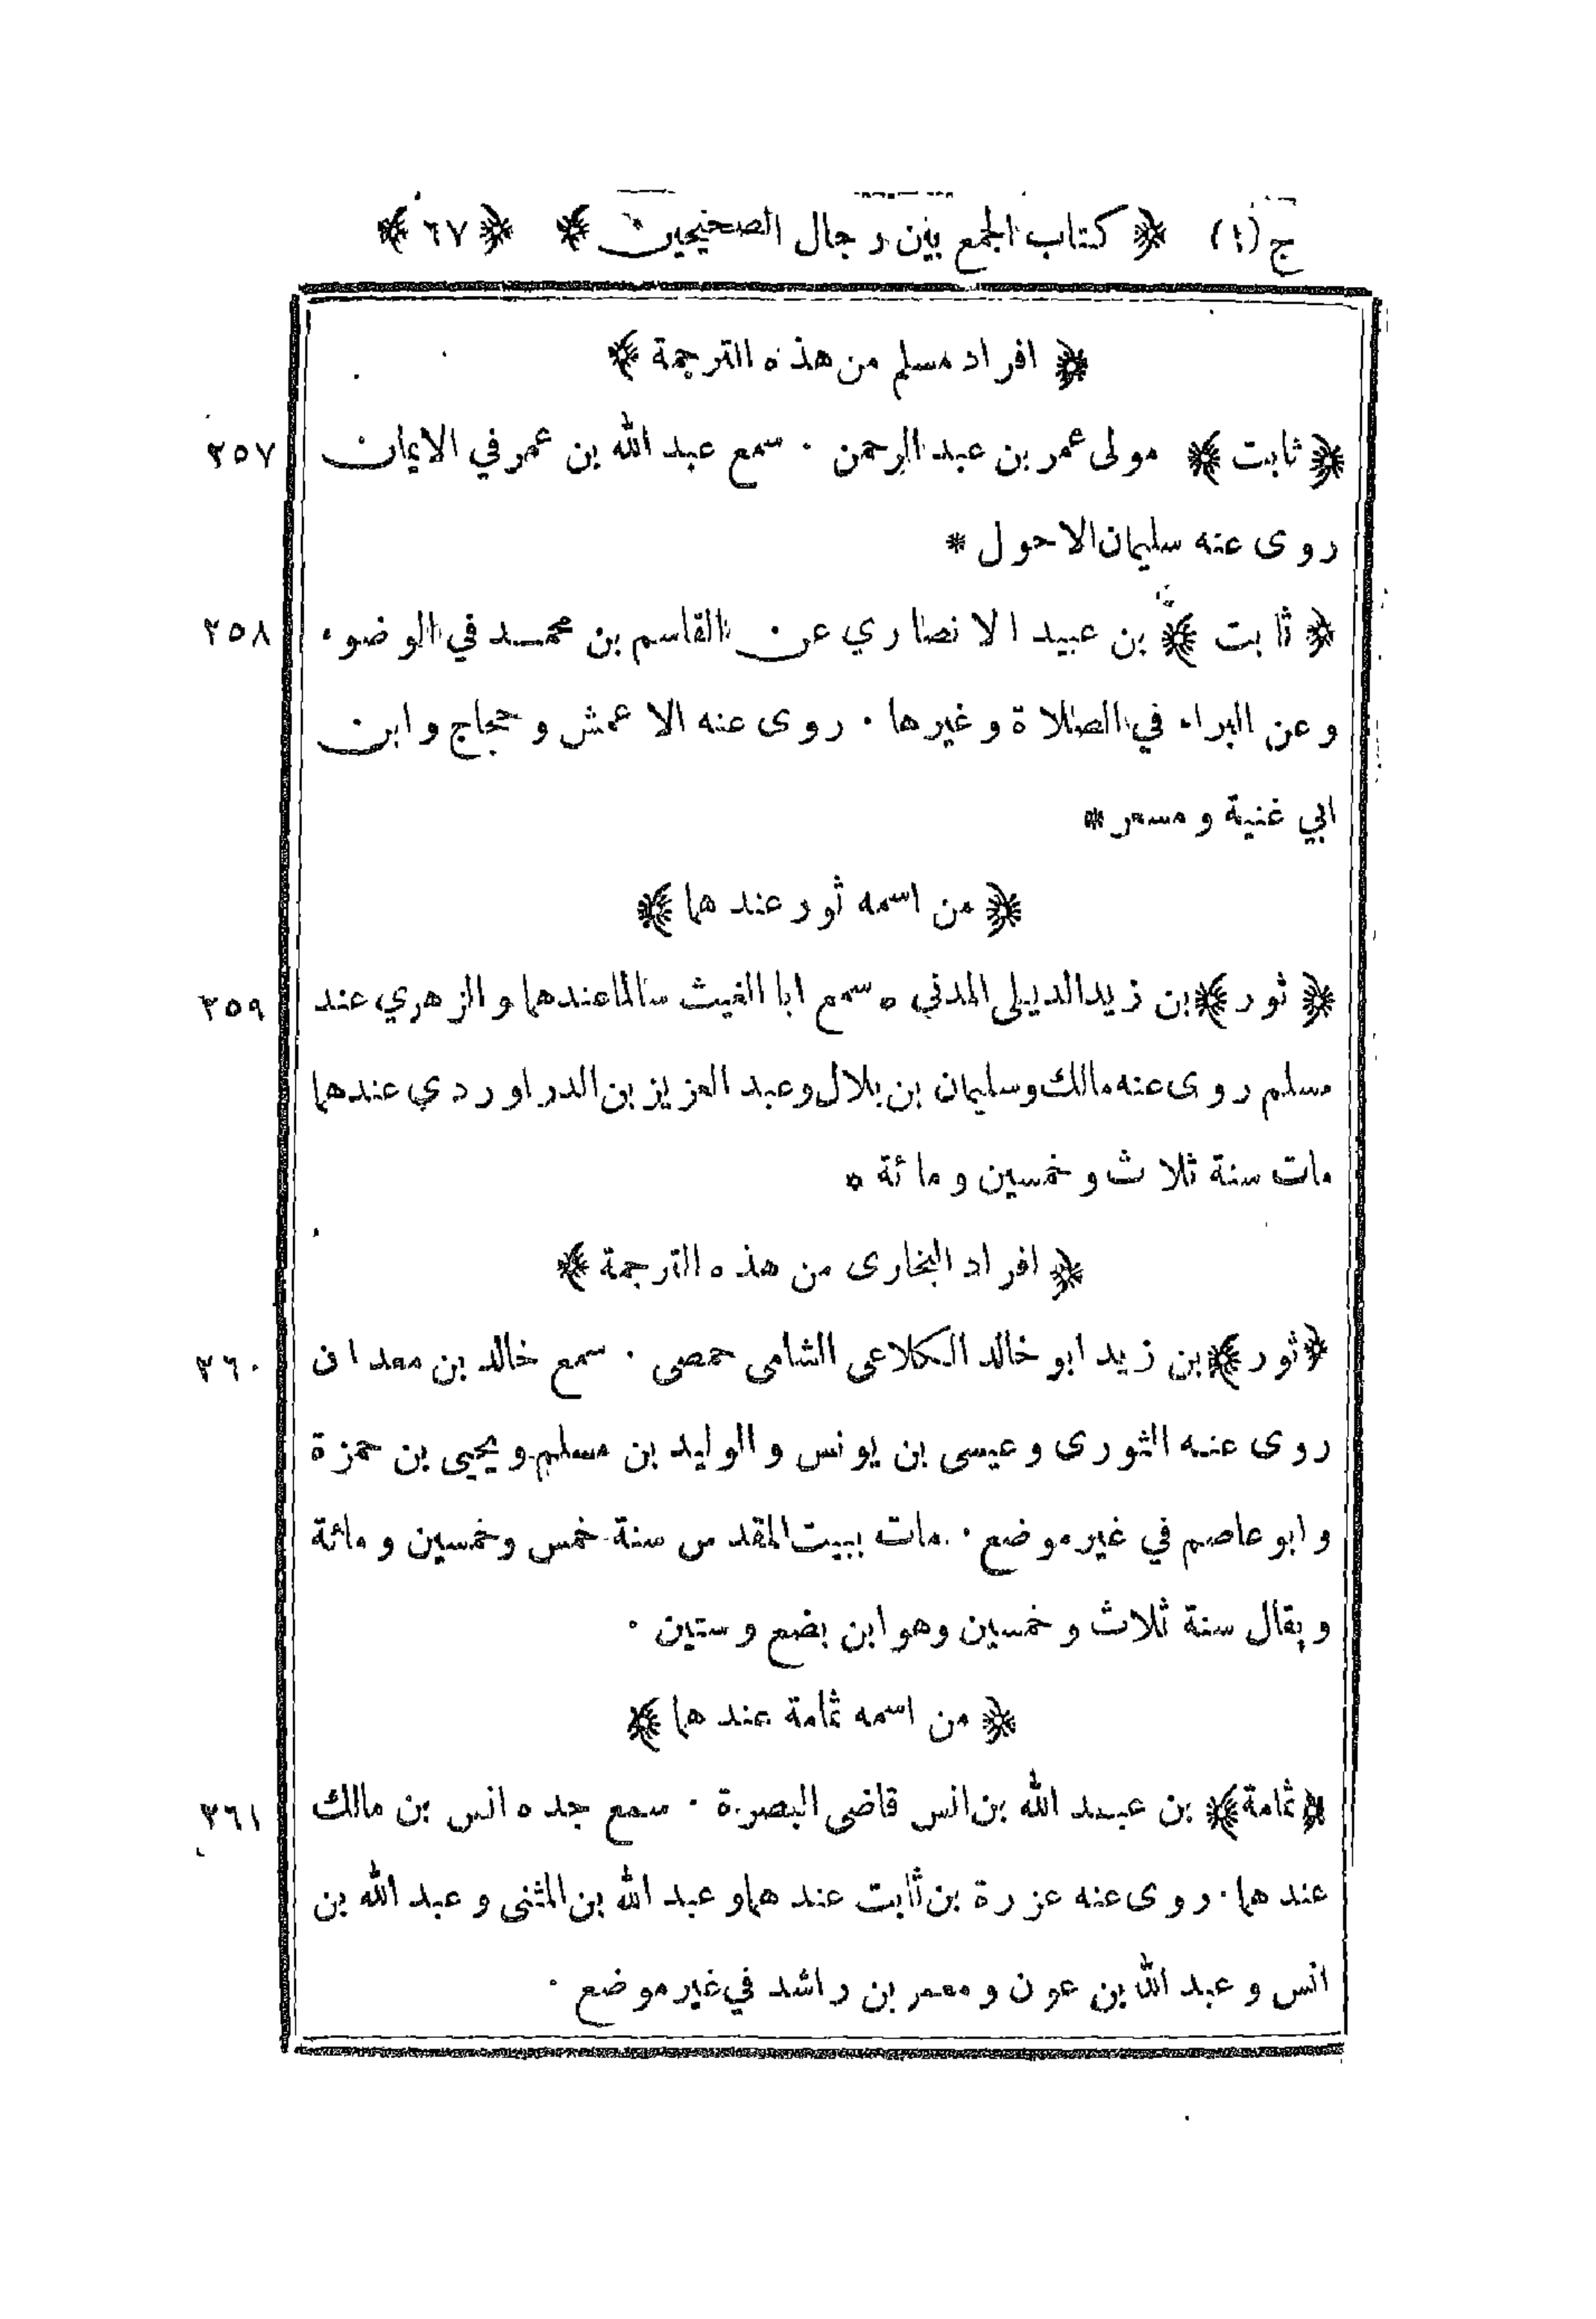 ج (١) ﴿ كتاب الجمع بين رجال الصحيحين ﴾ ﴿ ٦٧ ﴾
﴿ افراد مسلم من هذه الترجمة ﴾
﴿ ثابت ﴾ مولى عمر بن عبد الرحمن ٠ سمع عبد الله بن عمر في الايمان ٢٥٧
روى عنه سليمان الاحول *
﴿ ثابت ﴾ بن عبيد الانصاري عن القاسم بن محمد في الوضوء ٢٥٨
وعن البراء في الصلاة وغيرها ٠ روى عنه الاعمش وحجاج وابن
ابي غنية ومسعر *
﴿ من اسمه ثور عندهما ﴾
﴿ ثور ﴾ بن زيد الديلى المدني ٥ سمع ابا الغيث سالما عندهما والزهري عند ٢٥٩
مسلم روى عنه مالك وسليمان بن بلال وعبد العزيز بن الدراوردي عندهما
مات سنة ثلاث وخمسين ومائة ٥
﴿ افراد البخارى من هذه الترجمة ﴾
﴿ ثور ﴾ بن زيد ابو خالد الكلاعى الشامى حمصى ٠ سمع خالد بن معدان ٢٦٠
روى عنه الثورى وعيسى بن يونس والوليد بن مسلم ويحيى بن حمزة
وابو عاصم في غير موضع ٠ مات ببيت المقدس سنة خمس وخمسين ومائة
ويقال سنة ثلاث وخمسين وهو ابن بضع وستين ٠
﴿ من اسمه ثمامة عندهما ﴾
﴿ ثمامة ﴾ بن عبد الله بن انس قاضى البصرة ٠ سمع جده انس بن مالك ٢٦١
عندهما ٠ روى عنه عزرة بن ثابت عندهما وعبد الله بن المثنى وعبد الله بن
انس وعبد الله بن عون ومعمر بن راشد في غير موضع ٠